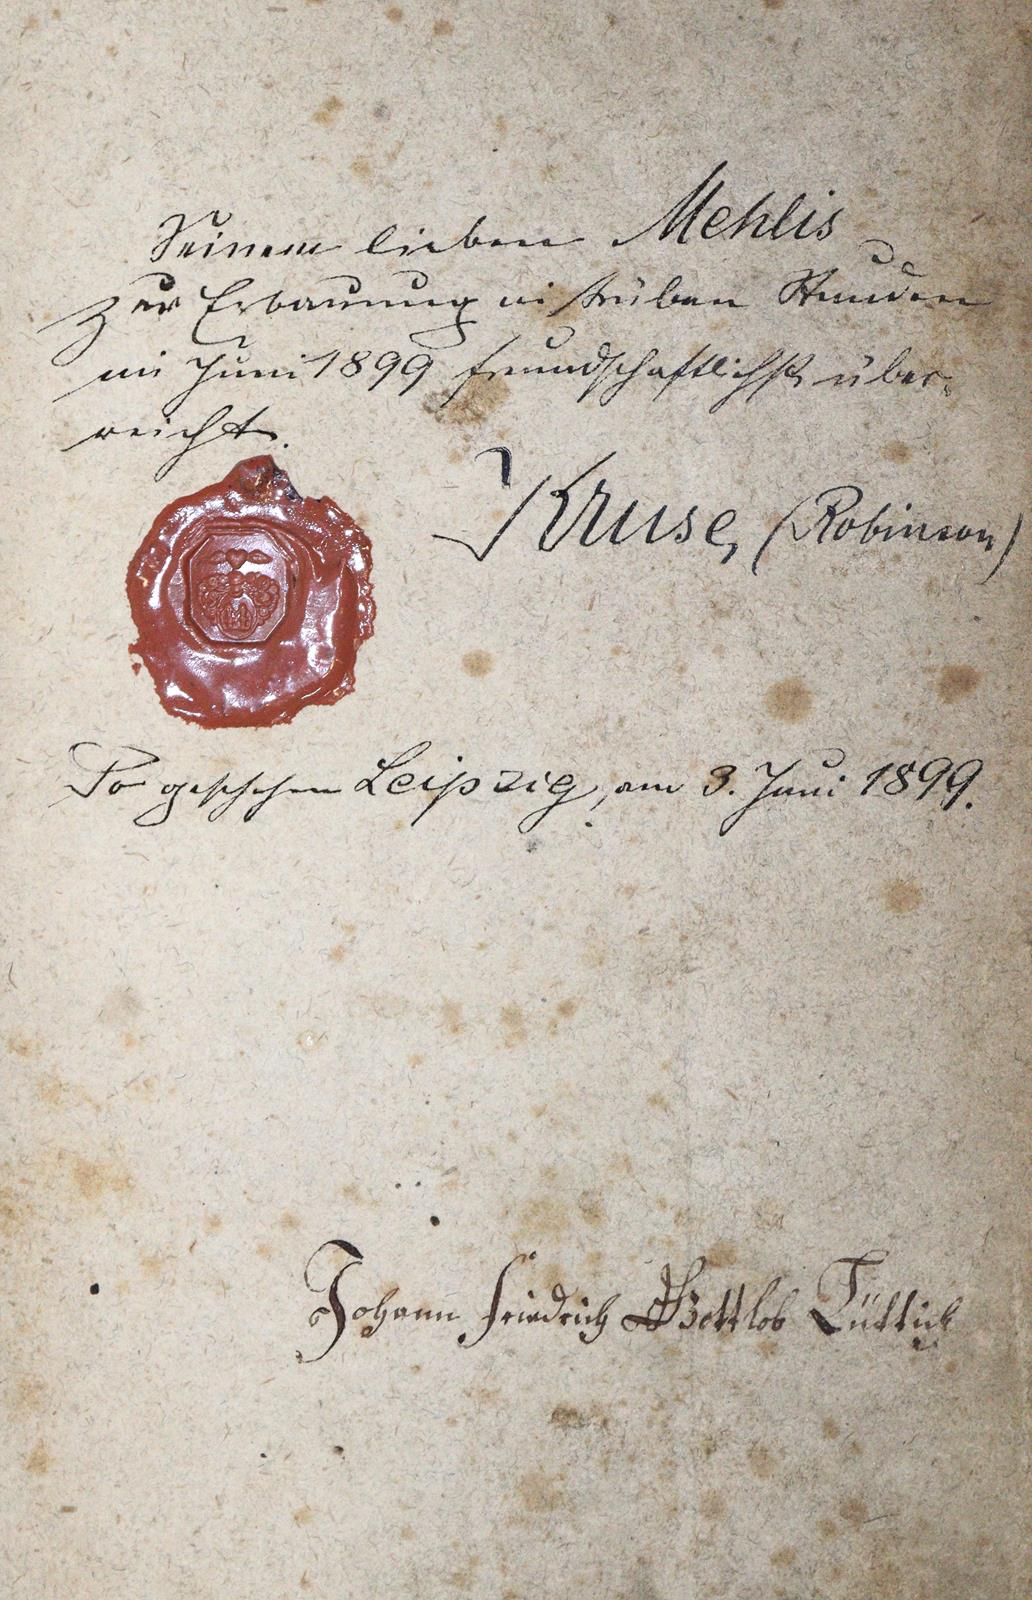 Seinem lieben Mehlis
zur Erbauung in trüben Stunden
im Juni 1899 freundschaftlichst über-
reicht.
Kruse, (Robinson)
So geschehen Leipzig, am 3. Juni 1899.
Johann Friedrich Gottlob